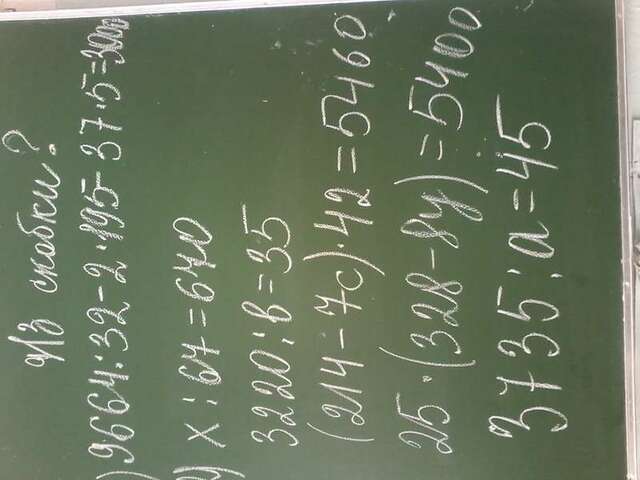 №3 скобки?
) 9664:32-2·195-37·5=3000
у) x:67=640
3220:в=35
(214-7c)·42=5460
25·(328-8у)=5400
3735:а=45